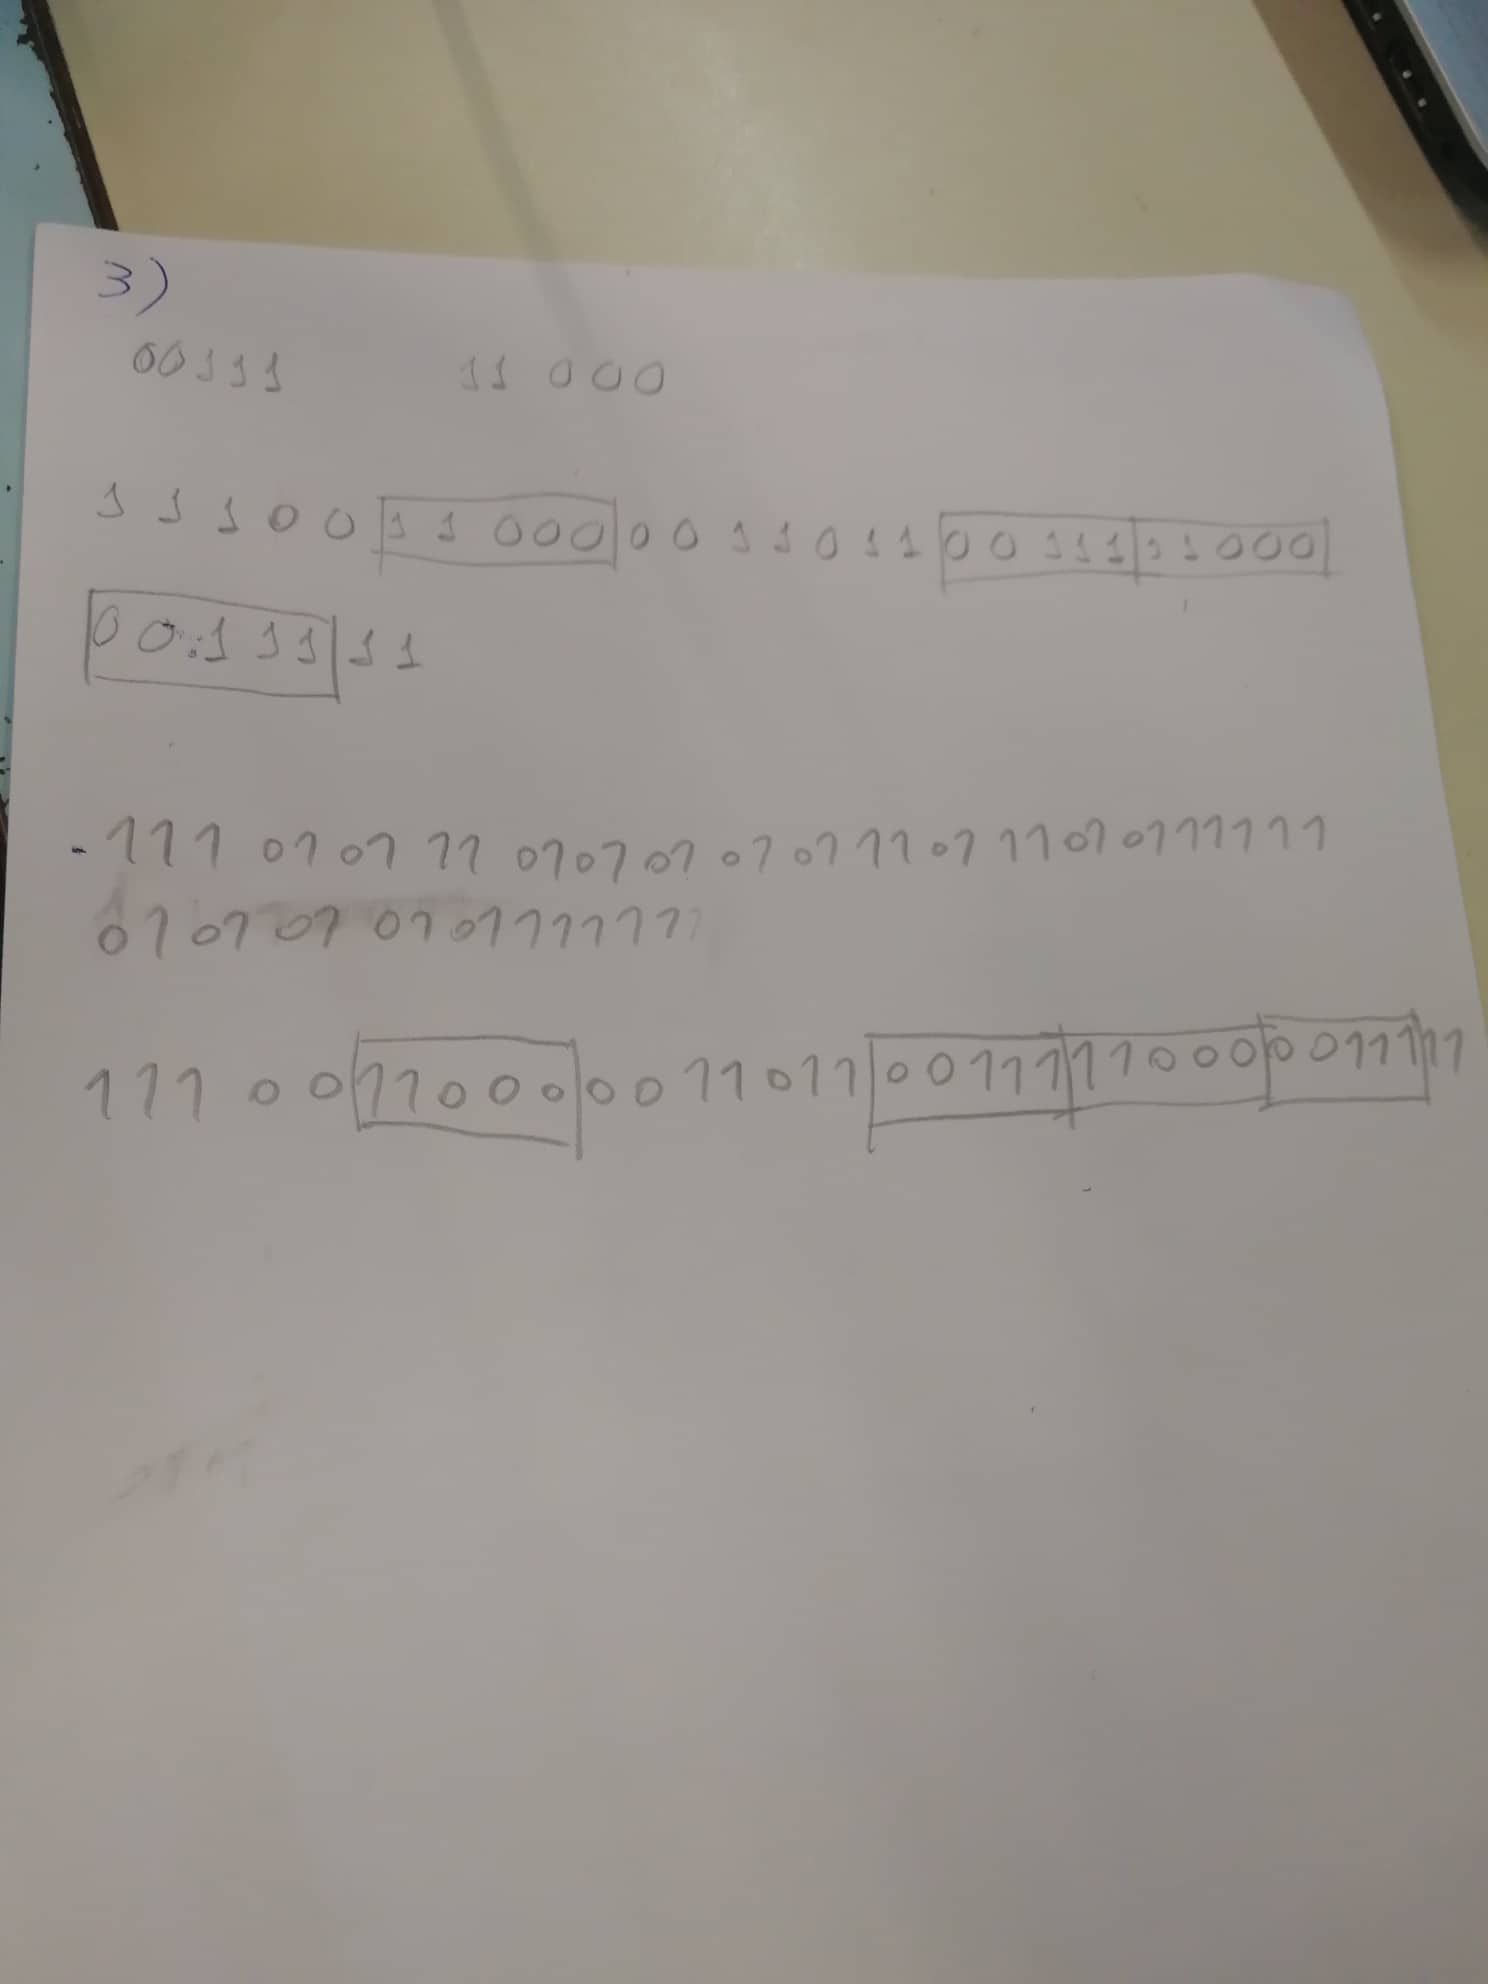 3)
00111 11 000
1 1 1 0 0 1 1 000 0 0 1 1 0 1 1 0 0 1 1 1 1 1 0 0 0
0 0 1 1 1 1 1
- 1 1 1 01 01 11 01 01 01 01 01 11 01 11 01 01 1 1 1 1 1
01 01 01 01 01 1 1 1 1 1
1 1 1 0 0 11 0 0 0 0 0 11 0 11 0 0 111 11 0 0 0 0 0 111 11